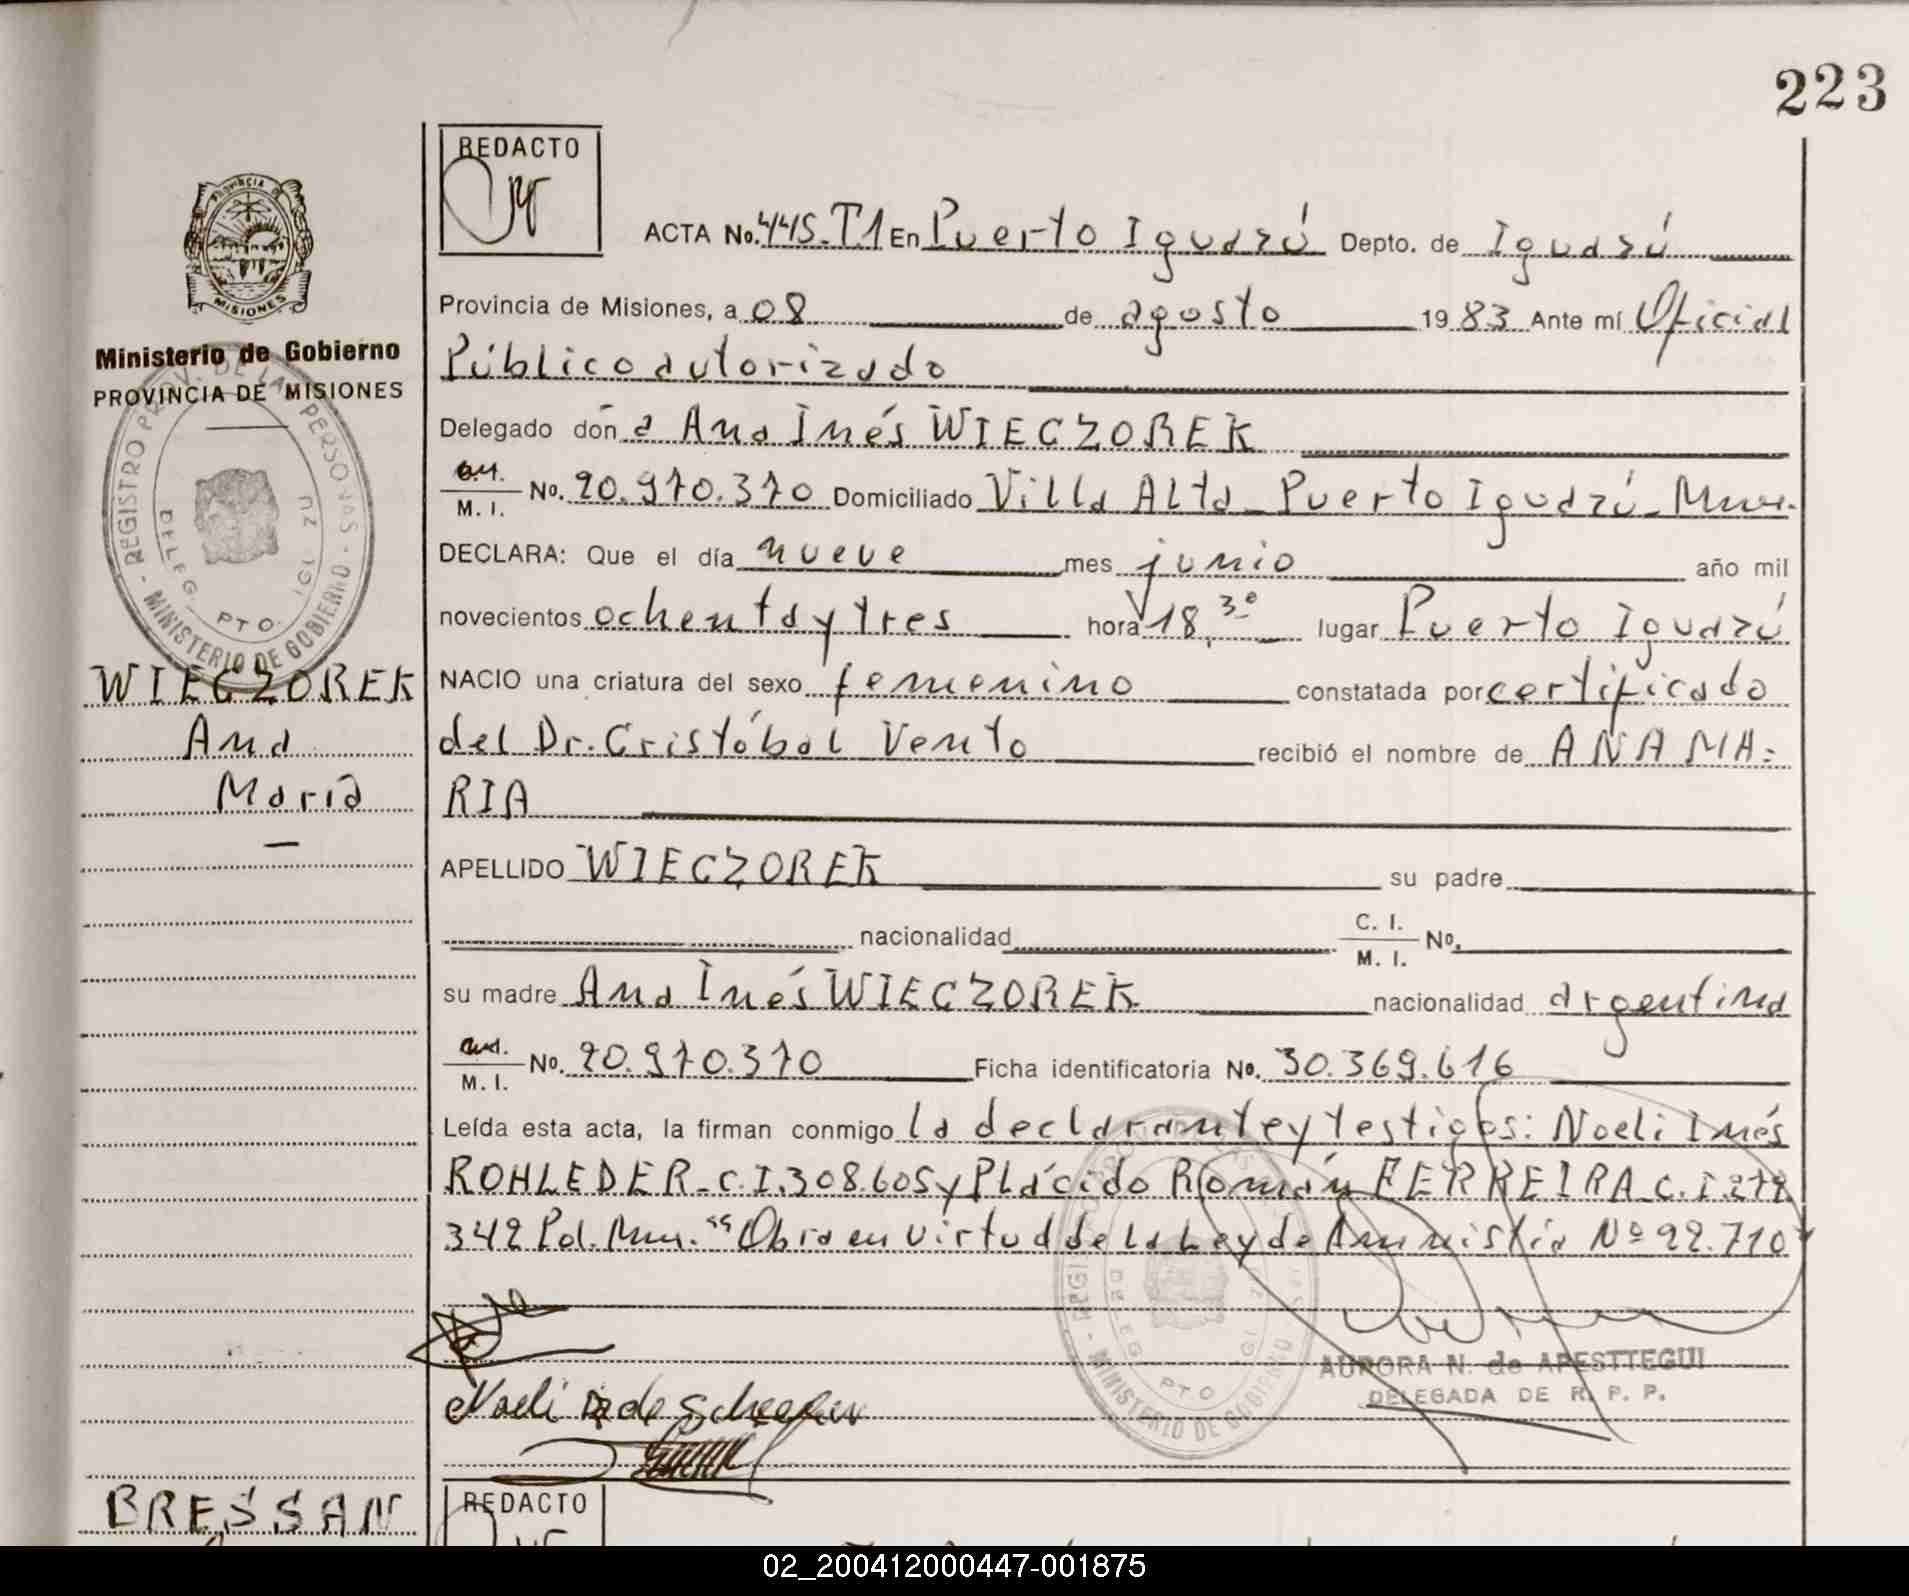 223
REDACTO
ACTA No. 445-T.1 En Puerto Iguazú Depto. de Iguazú
PROVINCIA DE
MISIONES
Provincia de Misiones, a 08 de agosto 1983 Ante mí Oficial
Ministerio de Gobierno
PROVINCIA DE MISIONES
Público autorizado
REGISTRO PROV. DE LAS PERSONAS - MINISTERIO DE GOBIERNO -
DELEG. PTO. IGUAZU
Delegado doña Ana Inés WIECZOREK
M. I. No. 20.970.370 Domiciliado Villa Alta - Puerto Iguazú -
DECLARA: Que el día nueve mes junio año mil
novecientos ochenta y tres hora 18,30 lugar Puerto Iguazú
WIECZOREK
Ana
María
NACIO una criatura del sexo femenino constatada por certificado
del Dr. Cristóbal Vento recibió el nombre de ANA MA=
RIA
APELLIDO WIECZOREK su padre
nacionalidad C. I. M. I. No.
su madre Ana Inés WIECZOREK nacionalidad argentina
M. I. No. 20.970.370 Ficha identificatoria No. 30.369.616
Leída esta acta, la firman conmigo la declarante y testigos: Noeli Inés
ROHLEDER - C.I. 308.605 y Plácido Román FERREIRA - C.I. 272
342 Pol. Mnes. "Obra en virtud de la Ley de Amnistía Nº 22.710
REGISTRO PROV. DE LAS PERSONAS - MINISTERIO DE GOBIERNO -
DELEG. PTO. IGUAZU
AURORA N. de APESTTEGUI
DELEGADA DE R. P. P.
Noeli de
BRESSAN
REDACTO
02_200412000447-001875